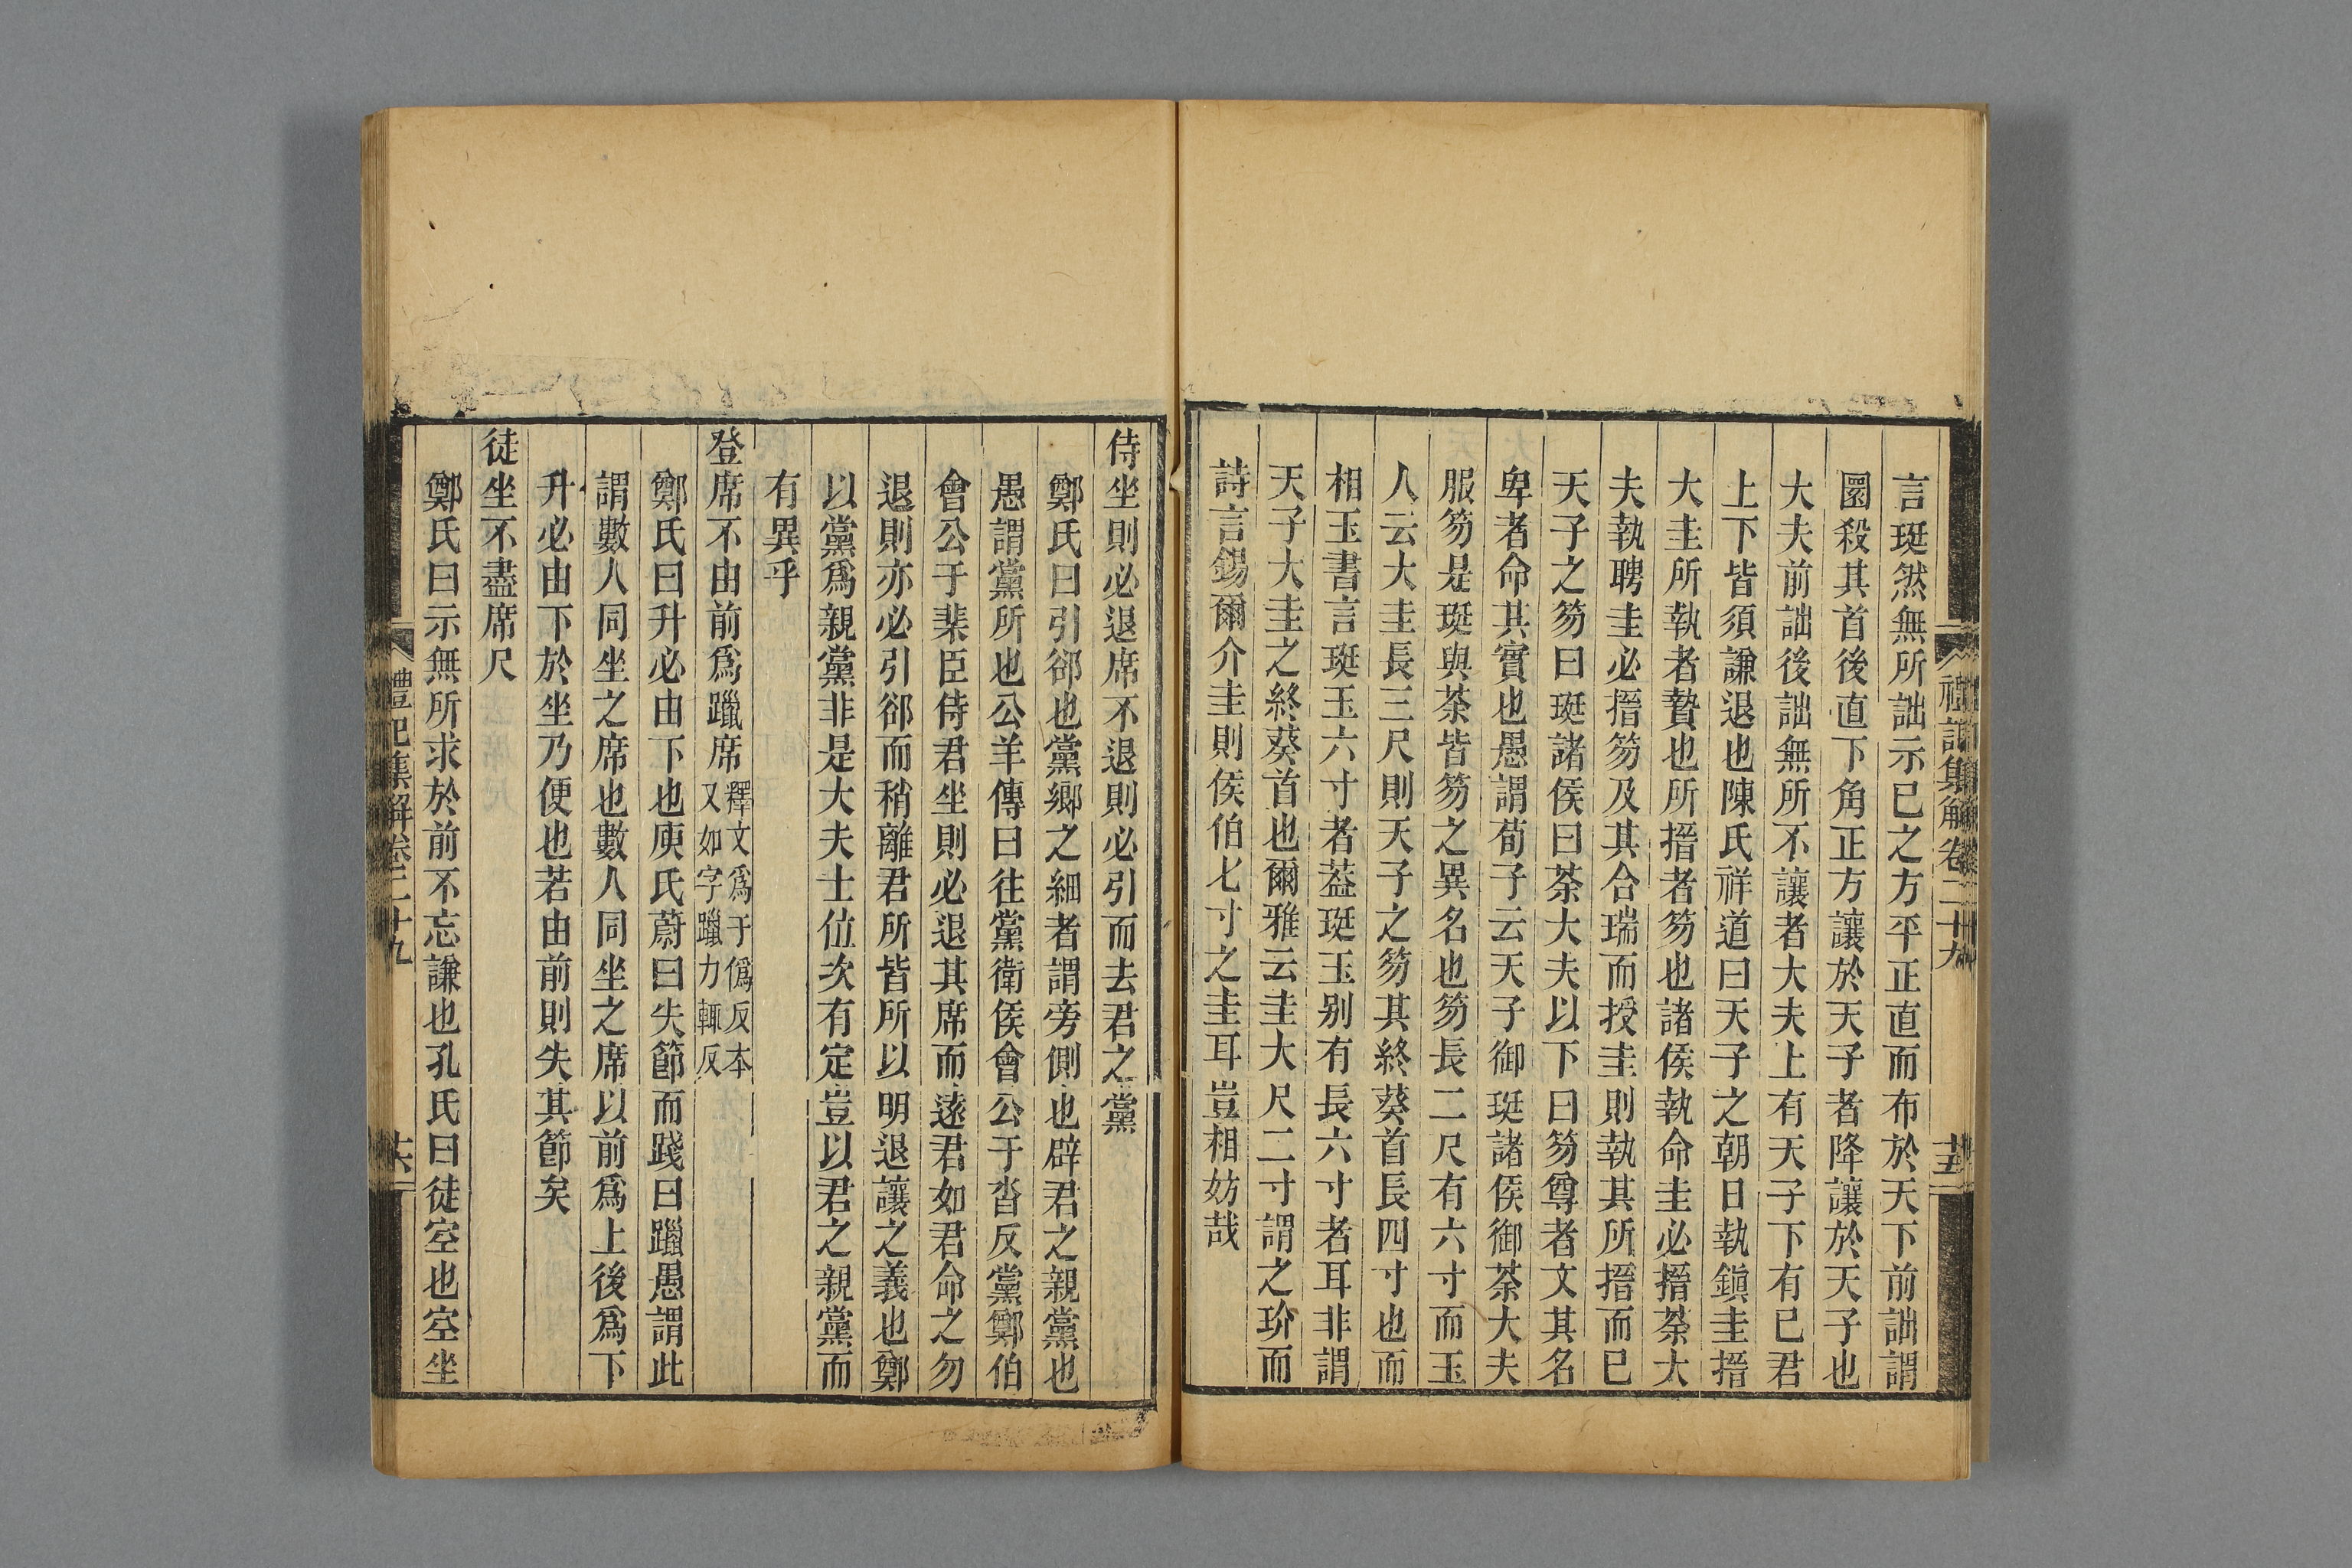 禮記集解卷二十九
十五
言珽然無所詘示已之方平正直而布於天下前詘謂
圜殺其首後直下角正方讓於天子者降讓於天子也
大夫前詘後詘無所不讓者大夫上有天子下有已君
上下皆須謙退也陳氏祥道曰天子之朝日執鎭圭搢
大圭所執者贄也所搢者笏也諸侯執命圭必搢荼大
夫執聘圭必搢笏及其合瑞而授圭則執其所搢而已
天子之笏曰珽諸侯曰荼大夫以下曰笏尊者文其名
卑者命其實也愚謂荀子云天子御珽諸侯御荼大夫
服笏是珽與荼皆笏之異名也笏長二尺有六寸而玉
人云大圭長三尺則天子之笏其終葵首長四寸也而
相玉書言珽玉六寸者葢珽玉别有長六寸者耳非謂
天子大圭之終葵首也爾雅云圭大尺二寸謂之玠而
詩言錫爾介圭則侯伯七寸之圭耳豈相妨哉
侍坐則必退席不退則必引而去君之黨
鄭氏曰引郤也黨鄉之細者謂旁側也辟君之親黨也
愚謂黨所也公羊傳曰往黨衛侯會公于沓反黨鄭伯
會公于棐臣侍君坐則必退其席而遠君如君命之勿
退則亦必引郤而稍離君所皆所以明退讓之義也鄭
以黨爲親黨非是大夫士位次有定豈以君之親黨而
有異乎
登席不由前爲躐席釋文爲于僞反本又如字躐力輒反
鄭氏曰升必由下也庾氏蔚曰失節而踐曰躐愚謂此
謂數人同坐之席也數人同坐之席以前爲上後爲下
升必由下於坐乃便也若由前則失其節矣
徒坐不盡席尺
鄭氏曰示無所求於前不忘謙也孔氏曰徒空也空坐
禮記集解卷二十九
十六